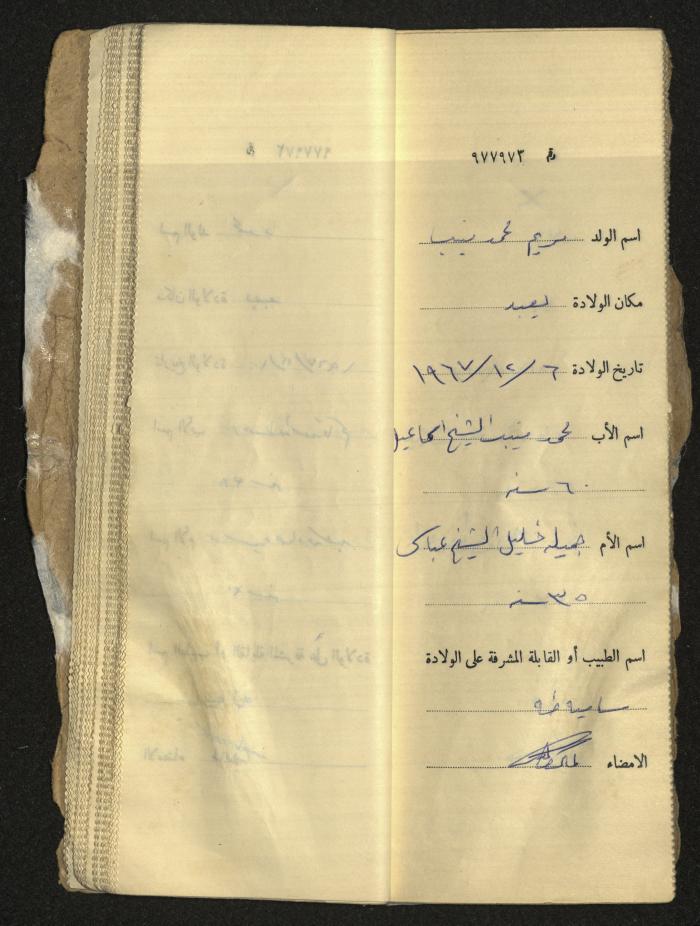 رقم ٩٧٧٩٧٣
اسم الولد مريم محمد منيب
مكان الولادة يعبد
تاريخ الولادة ٦/١٢/١٩٦٧
اسم الأب محمد منيب الشيخ اسماعيل
٦٠ سنه
اسم الأم جميله خليل الشيخ عباس
٣٥ سنه
اسم الطبيب أو القابلة المشرفة على الولادة
ساميه طه
الامضاء